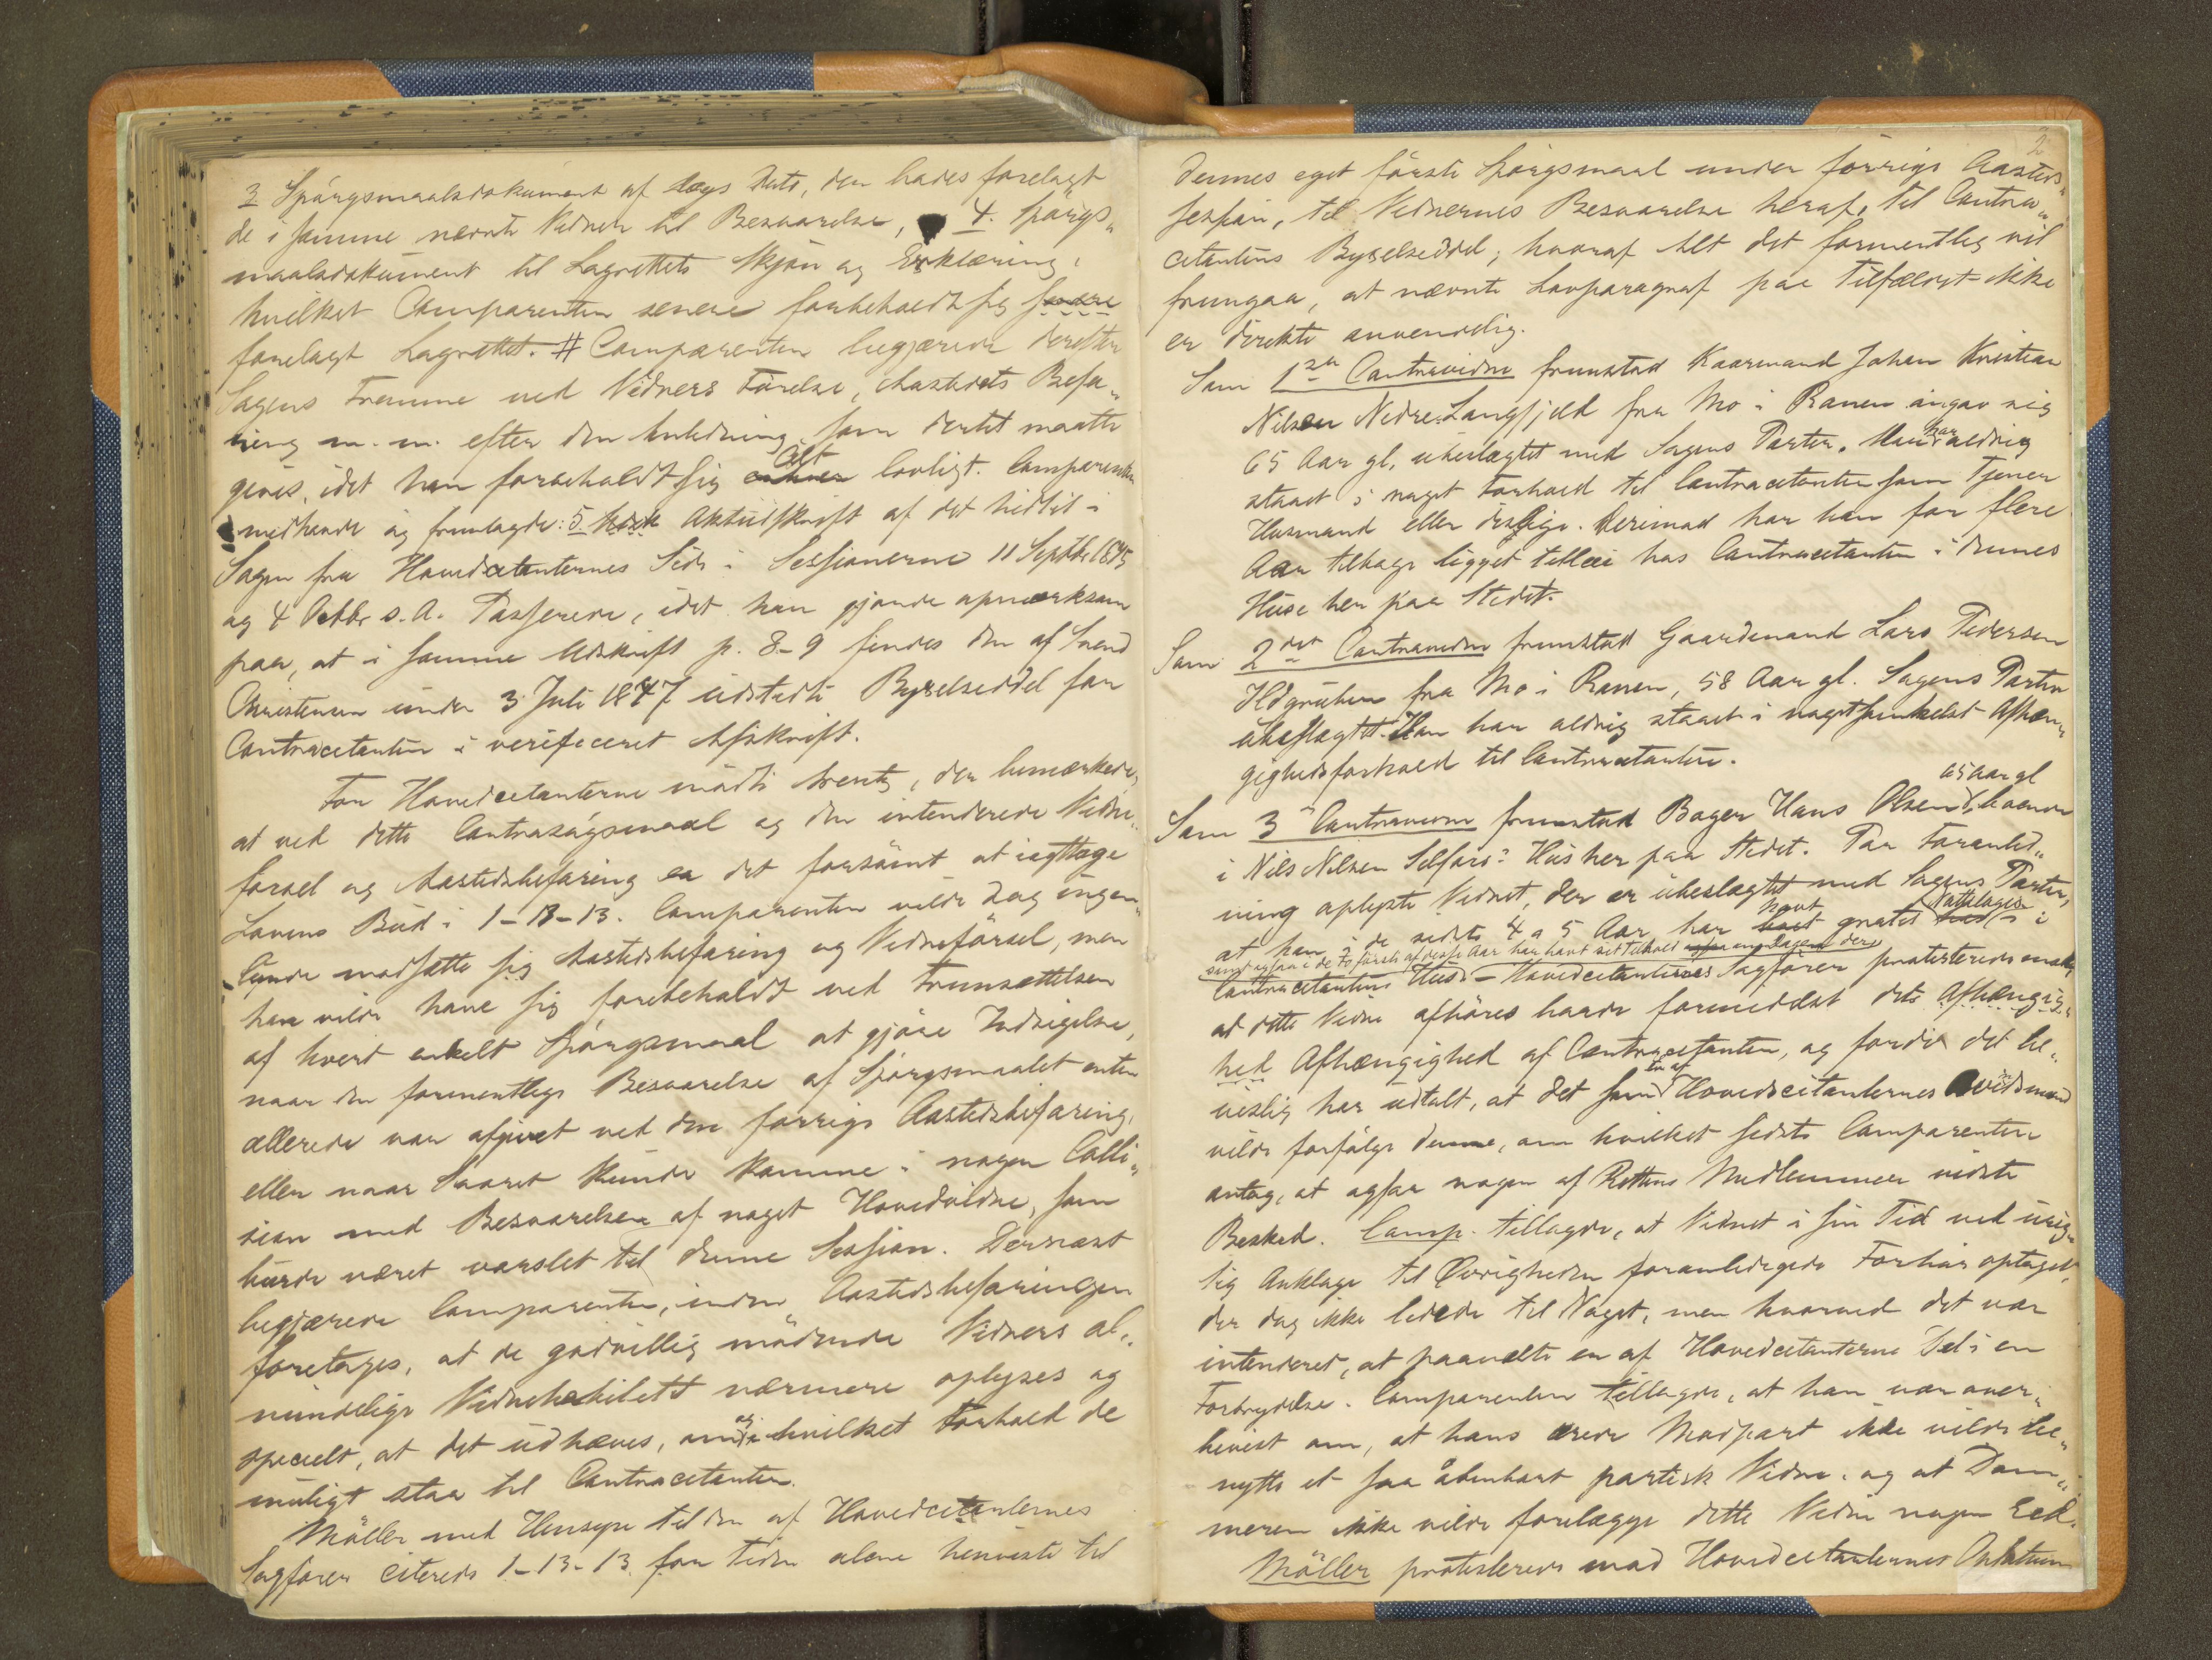 3 Spörgsmaalsdokument af dags Dato, der havdes forelagt
de i samme nævnte Vidner til Besvarelse, 4. Spörgs„
maalsdokument til Lagrettets Skjön og Erklæring,
hvilket Comparenten senere forbeholdt sig senere
forelagt Lagrettet. # Comparenten begjærede derefter
Sagens Fremme ved Vidners Förelse, Aastedets Befa„
ring m. m. efter den Anledning, som dertil maatte
gives, idet han forbeholdt sig Alt lovligt. Comparenten
medhavde og fremlagde: 5. Aktudskrift af det hidtil i
Sagen fra Hovedcitanternes Side i Sessionerne 11 Septbr 1895
og 4 Octbr s. A. Passerede, idet han gjorde opmærksom
paa, at i samme Udskrift p. 8-9 findes den af Svend
Christensen under 3 Juli 1847 udstedte Bygselseddel for
Contracitanten i verificeret Afskrift.
For Hovedcitanterne mödte, der bemærkede,
at ved dette Contrasögsmaal og den intenderede Vidne„
försel og Aastedsbefaring er det forsömt at iagttage
Lovens Bud i 1-13-13. Comparenten vilde dog ingen„
lunde modsætte sig Aastedsbefaring og Vidneförsel, men
han vilde have sig forbeholdt ved Fremsættelsen
af hvert enkelt Spörgsmaal at gjöre Indsigelse,
naar den formentlige Besvarelse af Spörgsmaalet enten
allerede var afgivet ved den forrige Aastedsbefaring,
eller naar Svaret kunde komme i nogen Colli„
sion med Besvarelsen af noget Hovedvidne, som
burde været varslet til denne Session. Dernæst
begjærede Comparenten, inden Aastedsbefaringen
foretages, at de godvillig mödende Vidners al„
mindelige Vidnehabilitet nærmere oplyses og
specielt, at det udhæves, om og i hvilket Forhold de
muligt staa til Contracitanten.
Möller med Hensyn til den af Hovedcitanternes
Sagförer citerede 1-13-13 for Tiden alene henviste til
2
dennes eget förste Spörgsmaal under forrige Aasteds„
session, til Vidnernes Besvarelse heraf, til Contra„
citantens Bygselseddel; hvoraf Alt det formentlig vil
fremgaa, at nævnte Lovparagraf paa Tilfældet ikke
er direkte anvendelig.
Som 1ste Contravidne fremstod Kaarmand Johan Kristian
Nilsen Nedre Langfjeld fra Mo i Ranen angav sig
65 Aar gl, ubeslægtet med Sagens Parter. Han har aldrig
staaet i noget Forhold til Contracitanten som Tjener
Husmand eller deslige. Derimod har han for flere
Aar tilbage ligget tilleie hos Contracitanten i dennes
Huse her paa Stedet.
Som 2det Contravidne fremstod Gaardmand Lars Pedersen
Ildgruben fra Mo i Ranen, 58 Aar gl. Sagens Parter
ubeslægtet. Han har aldrig staaet i nogetsomhelst Afhæn„
gighedsforhold til Contracitanten.
65 Aar gl
Som 3 Contravidne fremstod Bager Hans Olsen, boende
i Nils Nilsen Selfors' Hus her paa Stedet. Paa Foranled„
ning oplyste Vidnet, der er ubeslægtet med Sagens Parter,
at han i de sidste 4 a 5 Aar har havt gratis Natteleie i
samt ogsaa i de to förste af disse Aar har havt sit Tilhold om Dagen der
Contracitantens Hus. - Hovedcitanternes Sagförer protesterede mod,
at dette Vidne afhöres haade formedelst dets Afhængig„
hed Afhængighed af Contracitanten, og fordi det be„
vislig har udtalt, at det som en af Hovedcitanternes Avindsmænd
vilde forfölge denne, om hvilket sidste Comparenten
antog, at ogsaa nogen af Rettens Medlemmer vidste
Besked. Comp. tillagde, at Vidnet i sin Tid ved urig„
tig Anklage til Övrigheden foranledigede Forhör optaget,
der dog ikke ledede til Noget, men hvorved det var
intenderet, at paavælte en af Hovedcitanterne Del i en
Forbrydelse. Comparenten tillagde, at han var over„
bevist om, at hans ærede Modpart ikke vilde be„
nytte et saa åbenbart partisk Vidne, og at Dom„
meren ikke vilde forelægge dette Vidne nogen Eed.
Möller protesterede mod Hovedcitanternes